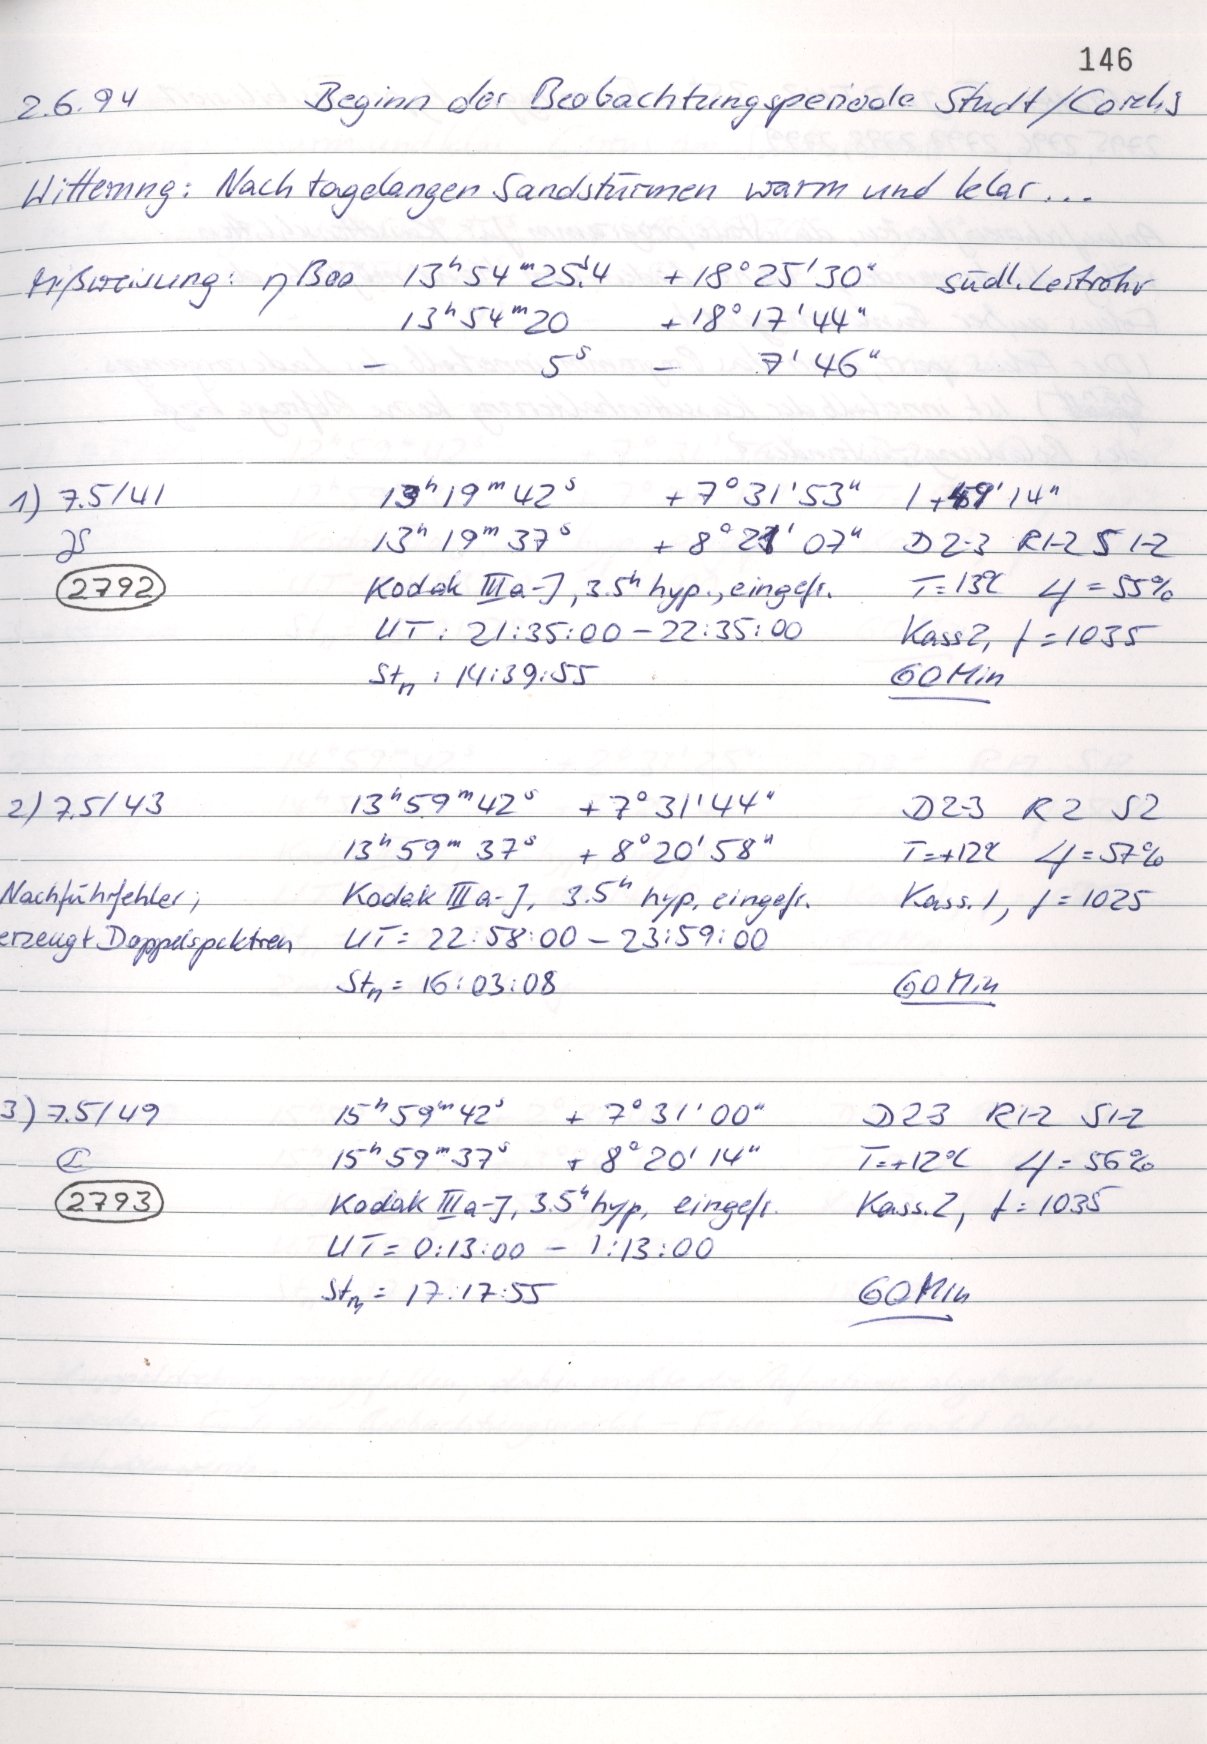 146
2.6.94 Beginn der Beobachtungsperiode Studt/Corelis
Witterung: Nach tagelangen Sandstürmen warm und klar...
Mißweisung: η Boo 13ʰ54ᵐ25ˢ.4 +18°25'30" südl. Leitrohr
13ʰ54ᵐ20 +18°17'44"
− 5ˢ − 7'46"
1) 7.5/41 13ʰ19ᵐ42ˢ +7°31'53" +49'14"
13ʰ19ᵐ37ˢ +8°21'07" D2-3 R1-2 S1-2
2792 Kodak IIIa-J, 3.5ʰ hyp., eingefr. T=13°C φ=55%
UT: 21:35:00 – 22:35:00 Kass 2, f=1035
Stₙ: 14:39:55 60 Min
2) 7.5/43 13ʰ59ᵐ42ˢ +7°31'44" D2-3 R2 S2
13ʰ59ᵐ37ˢ +8°20'58" T=+12°C φ=57%
Nachführfehler; Kodak IIIa-J, 3.5ʰ hyp, eingefr. Kass.1, f=1025
erzeugt Doppelspektren UT= 22:58:00 – 23:59:00
Stₙ= 16:03:08 60 Min
3) 7.5/49 15ʰ59ᵐ42ˢ +7°31'00" D2-3 R1-2 S1-2
15ʰ59ᵐ37ˢ +8°20'14" T=+12°C φ=56%
2793 Kodak IIIa-J, 3.5ʰ hyp, eingefr. Kass.2, f=1035
UT= 0:13:00 – 1:13:00
Stₙ= 17:17:55 60 Min